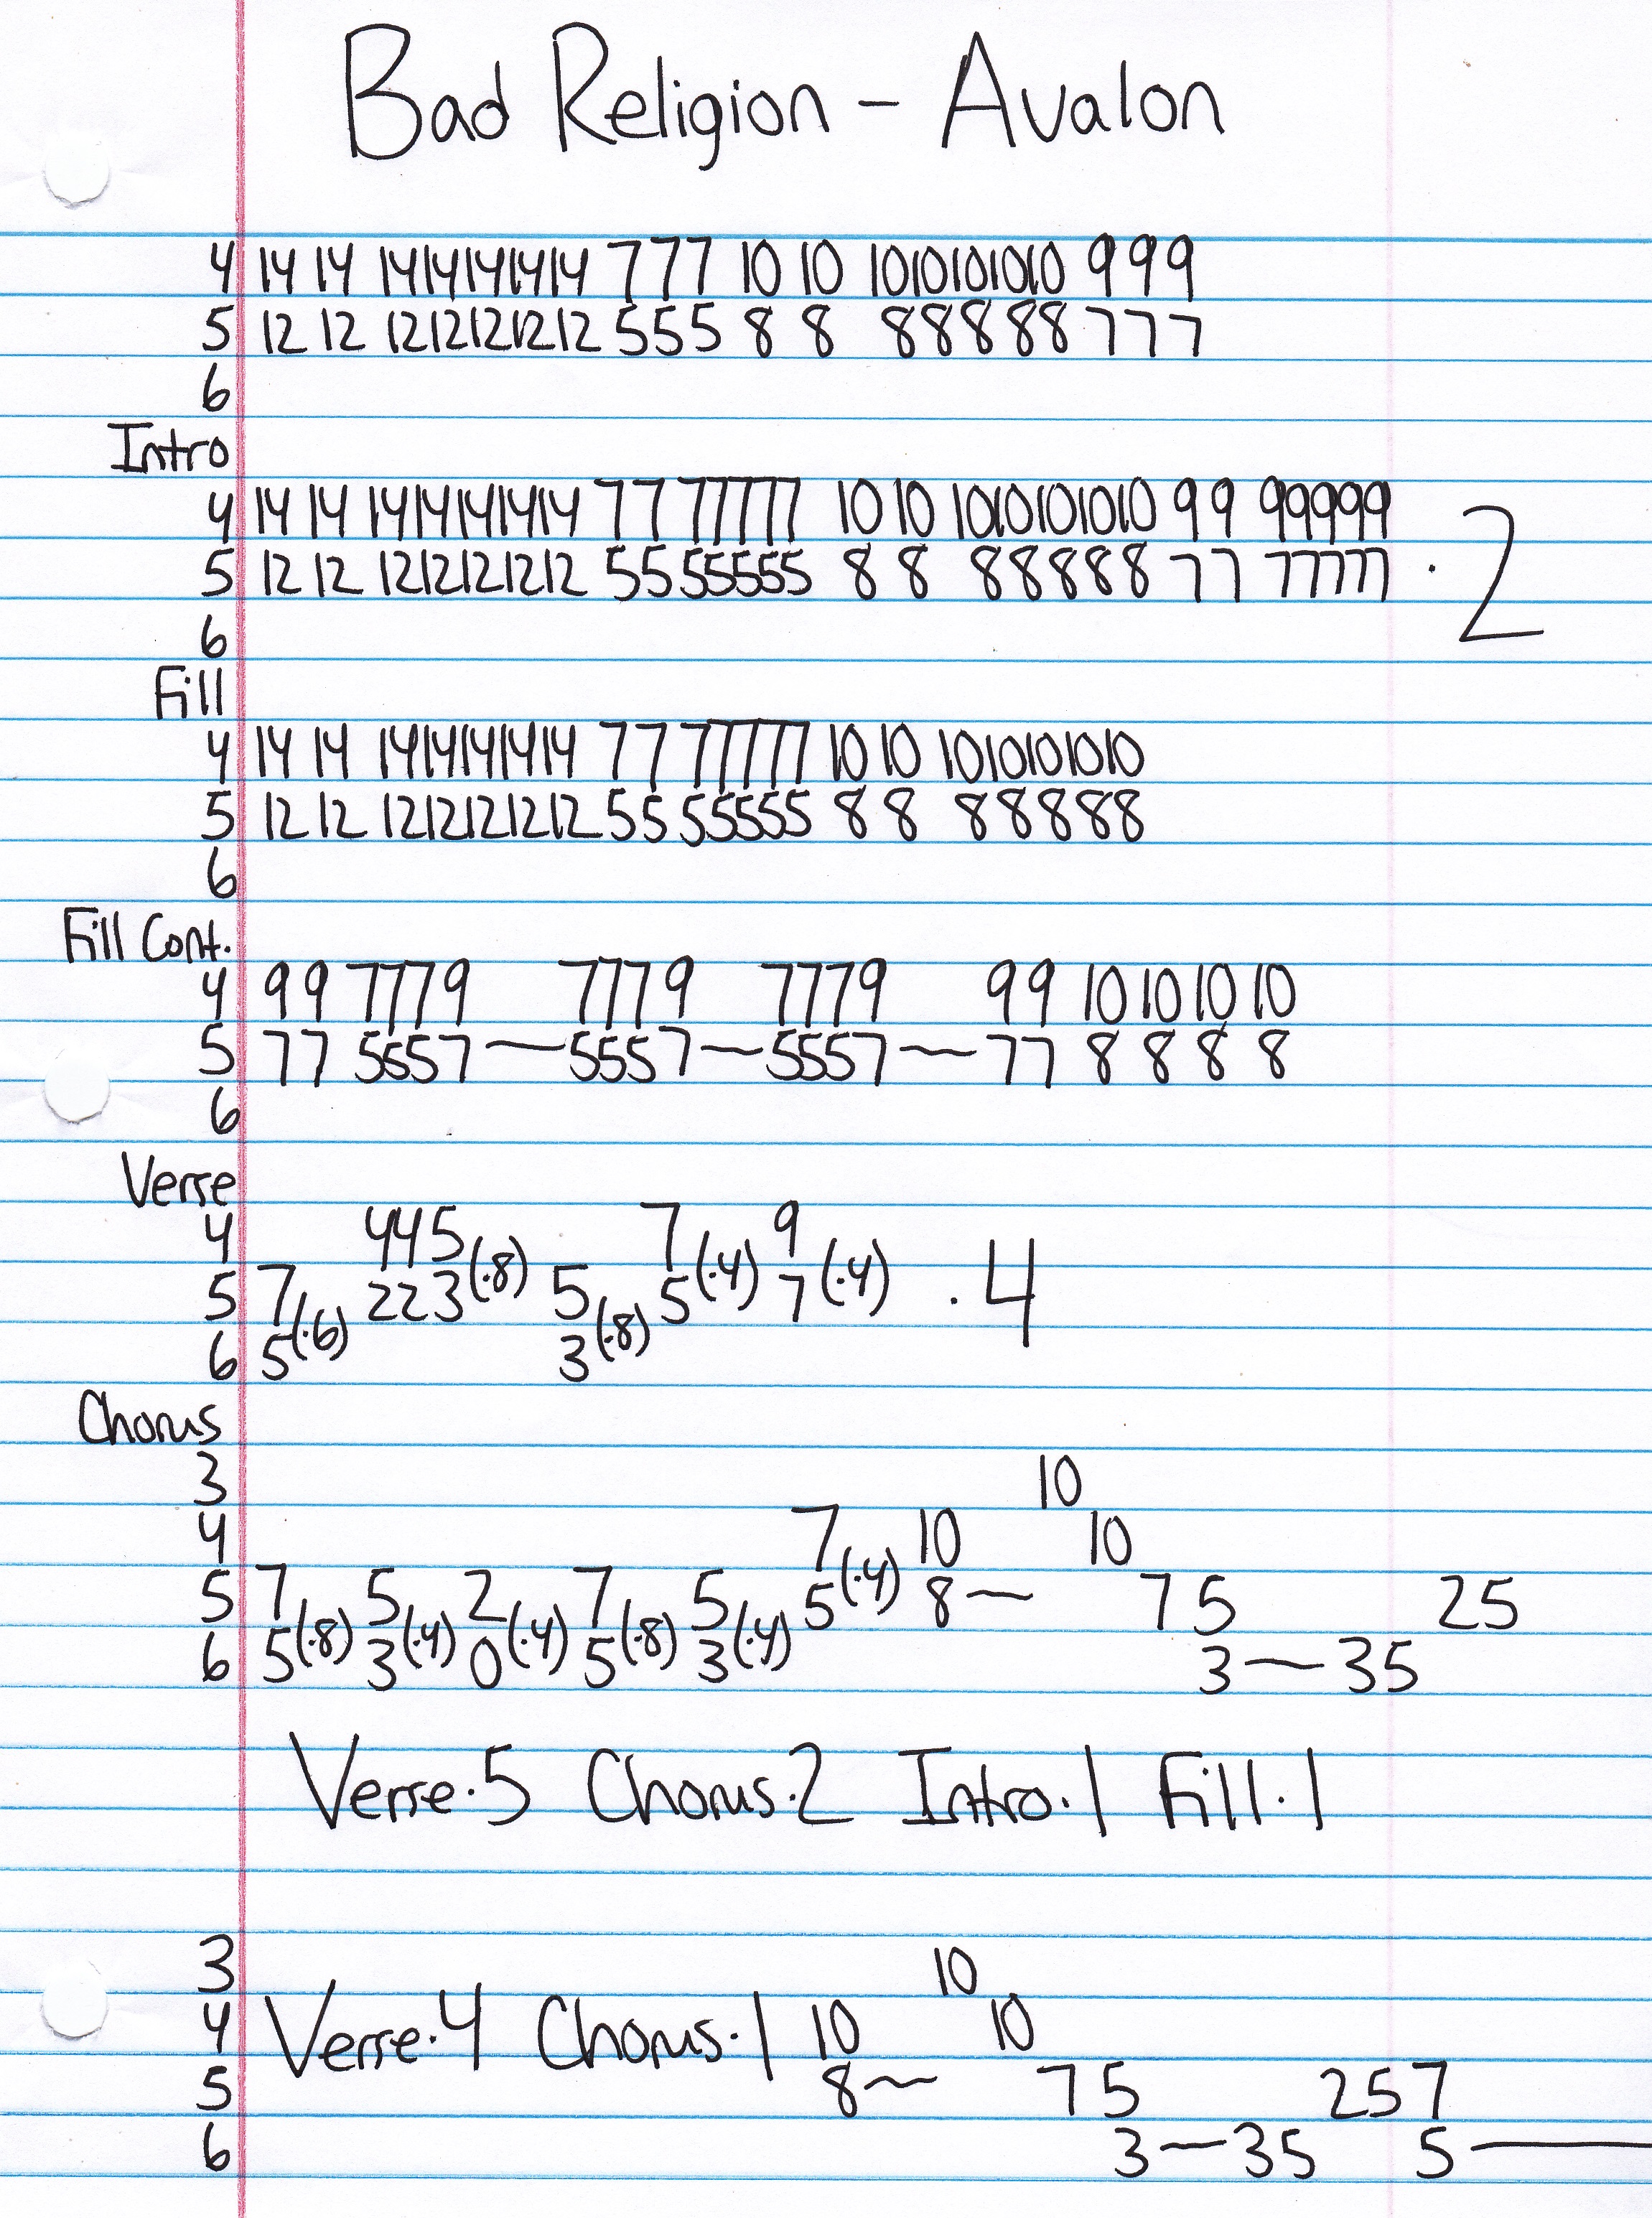 Bad Religion - Avalon
4 14 14 14 14 14 14 14 7 7 7 10 10 10 10 10 10 10 9 9 9
5 12 12 12 12 12 12 12 5 5 5 8 8 8 8 8 8 8 7 7 7
6
Intro
4 14 14 14 14 14 14 14 7 7 7 7 7 7 7 10 10 10 10 10 10 10 9 9 9 9 9 9 9
5 12 12 12 12 12 12 12 5 5 5 5 5 5 5 8 8 8 8 8 8 8 7 7 7 7 7 7 7 · 2
6
Fill
4 14 14 14 14 14 14 14 7 7 7 7 7 7 7 10 10 10 10 10 10 10
5 12 12 12 12 12 12 12 5 5 5 5 5 5 5 8 8 8 8 8 8 8
6
Fill Cont.
4 9 9 7 7 7 9 7 7 7 9 7 7 7 9 9 9 10 10 10 10
5 7 7 5 5 5 7 ~ 5 5 5 7 ~ 5 5 5 7 ~ 7 7 8 8 8 8
6
Verse
4 4 4 5 7 9
5 7 (·6) 2 2 3 (·8) 5 (·8) 5 (·4) 7 (·4) · 4
6 5 3
Chorus
3 10
4 7 10 10
5 7 5 2 7 5 5 (·4) 8 ~ 7 5 2 5
6 5 (·8) 3 (·4) 0 (·4) 5 (·8) 3 (·4) 3 ~ 3 5
Verse·5 Chorus·2 Intro·1 Fill·1
3 10
4 Verse·4 Chorus·1 10 10
5 8 ~ 7 5 2 5 7
6 3 ~ 3 5 5 —